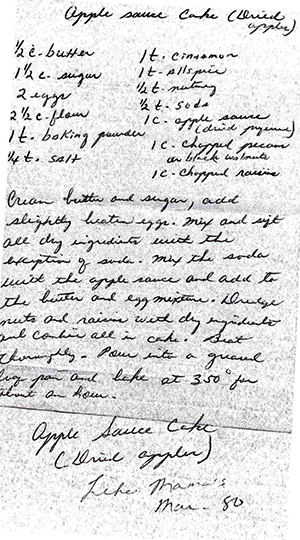 Apple sauce Cake (Dried
apples)
½ c. butter
1½ c. sugar
2 eggs
2½ c. flour
1 t. baking powder
¼ t. salt
1 t. cinnamon
1 t. allspice
½ t. nutmeg
½ t. soda
1 c. apple sauce
(dried
1 c. chopped pecans
or black walnuts
1 c. chopped raisins
Cream butter and sugar, add
slightly beaten eggs. Mix and sift
all dry ingredients with the
exception of soda. Mix the soda
with the apple sauce and add to
the butter and egg mixture. Dredge
nuts and raisins with dry ingredients
and combine all in cake. Beat
thoroughly. Pour into a greased
loaf pan and bake at 350° for
about an hour.
Apple Sauce Cake
(Dried apples)
Like Mama's
Mar. 80